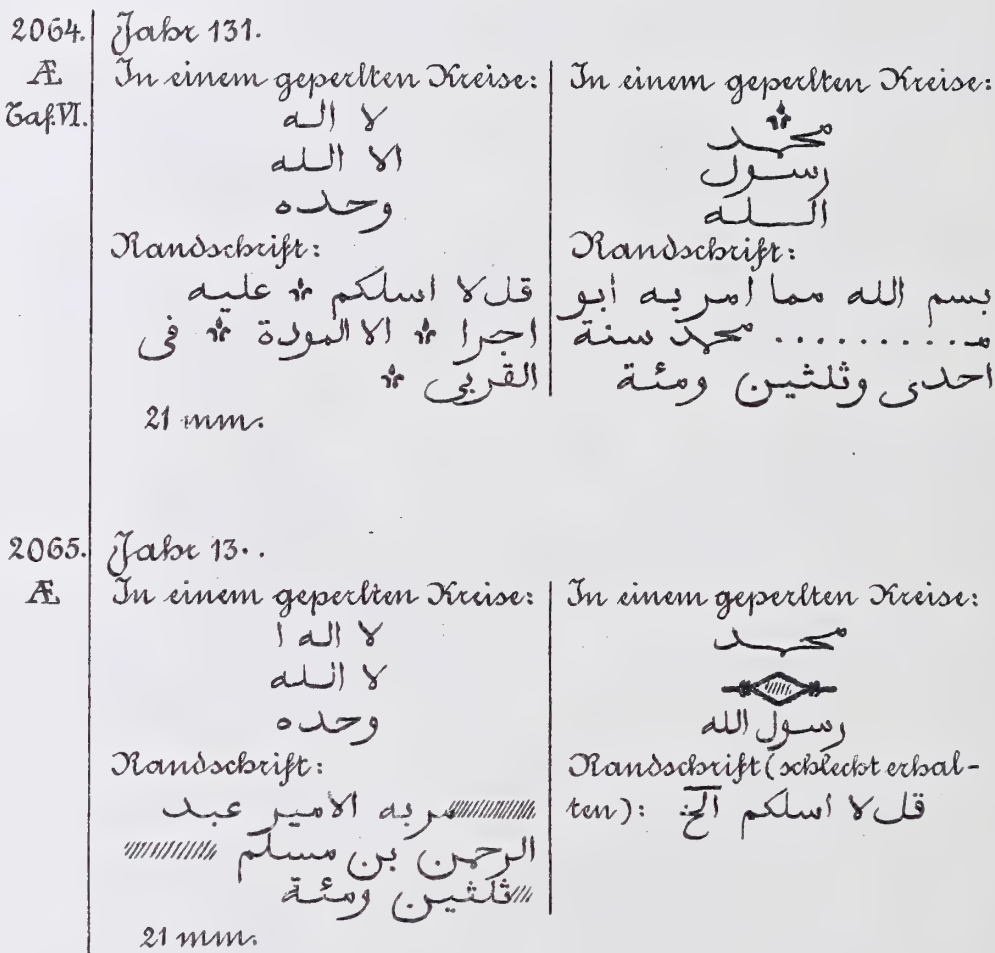 2064.
Æ
Taf. VI.
Jahr 131.
In einem geperlten Kreise:
لا اله
الا الله
وحده
Randschrift:
قل لا اسلكم عليه
اجرا الا المودة فى
القربى
21 mm.
In einem geperlten Kreise:
محمد
رسول
الله
Randschrift:
بسم الله مما امر به ابو
مـ.......... محمد سنة
احدى وثلثين ومئة
2065.
Æ
Jahr 13..
In einem geperlten Kreise:
لا اله ا
لا الله
وحده
Randschrift:
مر به الامير عبد
الرحمن بن مسلم
ثلثين ومئة
21 mm.
In einem geperlten Kreise:
محمد
رسول الله
Randschrift (schlecht erhal-
ten): قل لا اسلكم الخ